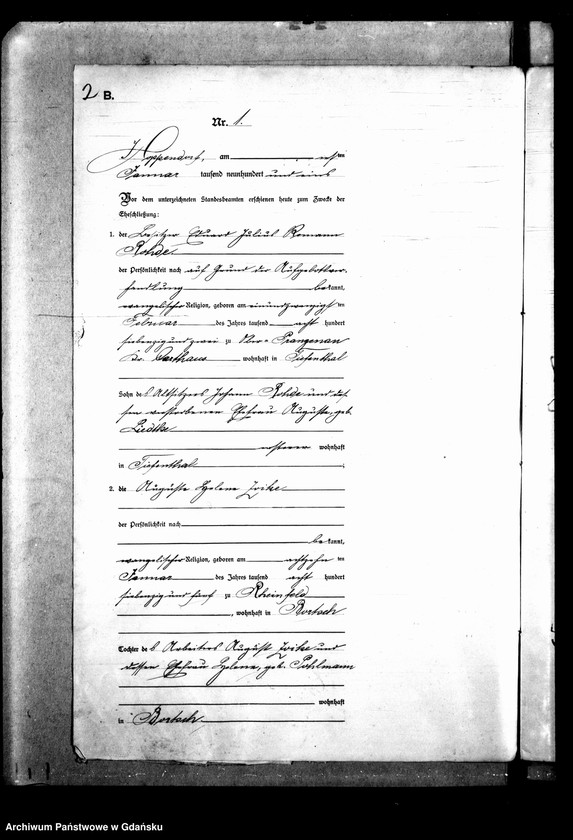 2 B.
Nr. 1.
Hoppendorf, am
Januar tausend neunhundert und eins
Vor dem unterzeichneten Standesbeamten erschienen heute zum Zwecke der
Eheschließung:
1. der Besitzer Eduard Julius Romann
Rohde
der Persönlichkeit nach auf Grund der Aufgebotsver-
handlung bekannt,
evangelischer Religion, geboren am einundzwanzigsten
Februar des Jahres tausend acht hundert
siebenzig und zwei zu Ober-Prangenau
Kr. Carthaus, wohnhaft in Tiefenthal
Sohn des Altsitzers Johann Rohde und des-
sen verstorbenen Ehefrau Auguste, geb.
Liedtke
ersterer wohnhaft
in Tiefenthal
2. die Auguste Helene
der Persönlichkeit nach
bekannt,
evangelischer Religion, geboren am achtzehnten
Januar des Jahres tausend acht hundert
siebenzig und fünf zu Rheinfeld
, wohnhaft in Bortsch
Tochter des Arbeiters August und
dessen Ehefrau Helene, geb. Pohlmann
wohnhaft
in Bortsch
Archiwum Państwowe w Gdańsku